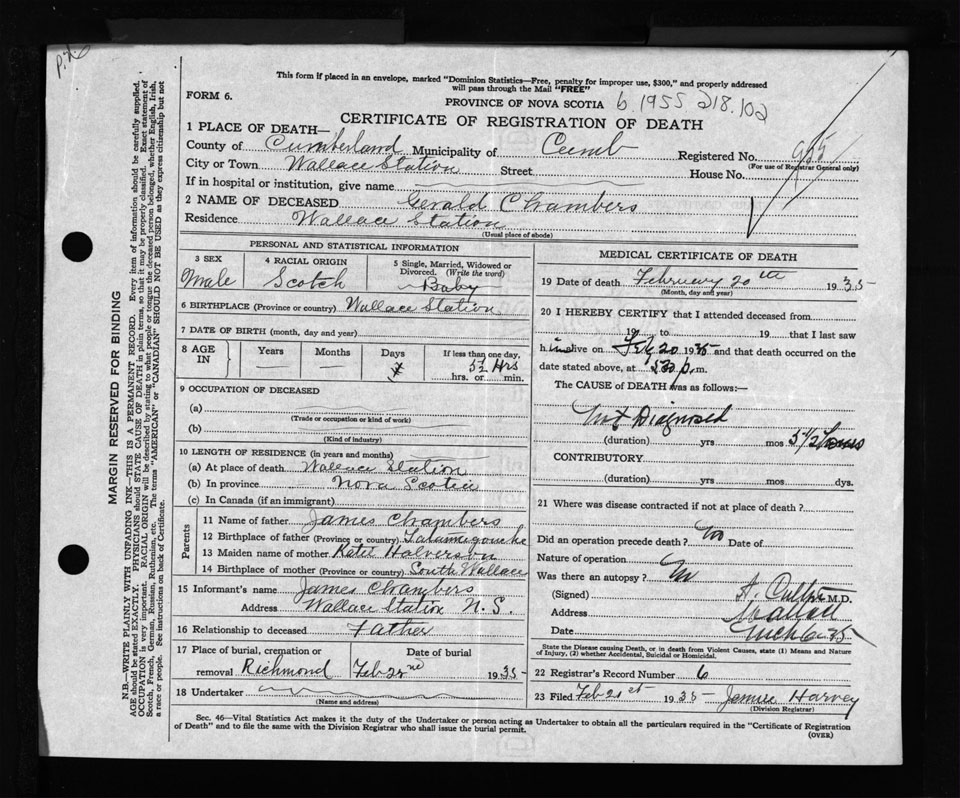 P.X.
This form if placed in an envelope, marked "Dominion Statistics—Free, penalty for improper use, $300," and properly addressed
will pass through the Mail "FREE"
FORM 6.
PROVINCE OF NOVA SCOTIA b. 1955 218.102
CERTIFICATE OF REGISTRATION OF DEATH
1 PLACE OF DEATH—
County of Cumberland Municipality of Cumb Registered No. 955
(For use of Registrar General only)
City or Town Wallace Station Street House No.
If in hospital or institution, give name
2 NAME OF DECEASED Gerald Chambers
Residence Wallace Station
(Usual place of abode)
PERSONAL AND STATISTICAL INFORMATION
3 SEX 4 RACIAL ORIGIN 5 Single, Married, Widowed or
Divorced. (Write the word)
Male Scotch Baby
6 BIRTHPLACE (Province or country) Wallace Station
7 DATE OF BIRTH (month, day and year)
8 AGE IN Years Months Days If less than one day,
5½ Hrs
hrs. or min.
9 OCCUPATION OF DECEASED
(a)
(Trade or occupation or kind of work)
(b)
(Kind of industry)
10 LENGTH OF RESIDENCE (in years and months)
(a) At place of death Wallace Station
(b) In province Nova Scotia
(c) In Canada (if an immigrant)
Parents
11 Name of father James Chambers
12 Birthplace of father (Province or country) Tatamagouche
13 Maiden name of mother Katie Halverson
14 Birthplace of mother (Province or country) South Wallace
15 Informant's name James Chambers
Address Wallace Station N.S.
16 Relationship to deceased Father
17 Place of burial, cremation or Date of burial
removal Richmond Feb 22nd 1935
18 Undertaker
(Name and address)
MEDICAL CERTIFICATE OF DEATH
19 Date of death February 20th 1935
(Month, day and year)
20 I HEREBY CERTIFY that I attended deceased from
19 to 19 that I last saw
h im alive on Feb 20 1935 and that death occurred on the
date stated above, at p.m.
The CAUSE of DEATH was as follows:—
Not Diagnosed
(duration) yrs mos 5 1/2 hours
CONTRIBUTORY
(duration) yrs. mos. dys.
21 Where was disease contracted if not at place of death?
Did an operation precede death? No Date of
Nature of operation
Was there an autopsy? No
(Signed) M.D.
Address Wallace
Date
State the Disease causing Death, or in death from Violent Causes, state (1) Means and Nature
of Injury, (2) whether Accidental, Suicidal or Homicidal.
22 Registrar's Record Number 6
23 Filed Feb 21st 1935 James Harvey
(Division Registrar)
Sec. 46—Vital Statistics Act makes it the duty of the Undertaker or person acting as Undertaker to obtain all the particulars required in the "Certificate of Registration
of Death" and to file the same with the Division Registrar who shall issue the burial permit.
(OVER)
MARGIN RESERVED FOR BINDING
N.B.—WRITE PLAINLY WITH UNFADING INK—THIS IS A PERMANENT RECORD. Every item of information should be carefully supplied.
AGE should be stated EXACTLY. PHYSICIANS should STATE CAUSE OF DEATH in plain terms, so that it may be properly classified. Exact statement of
OCCUPATION is very important. RACIAL ORIGIN will be described by stating to what people or tongue the deceased person belonged, whether English, Irish,
Scotch, French, German, Russian, Ruthenian, etc. The terms "AMERICAN" or "CANADIAN" SHOULD NOT BE USED as they express citizenship but not
a race or people. See instructions on back of Certificate.